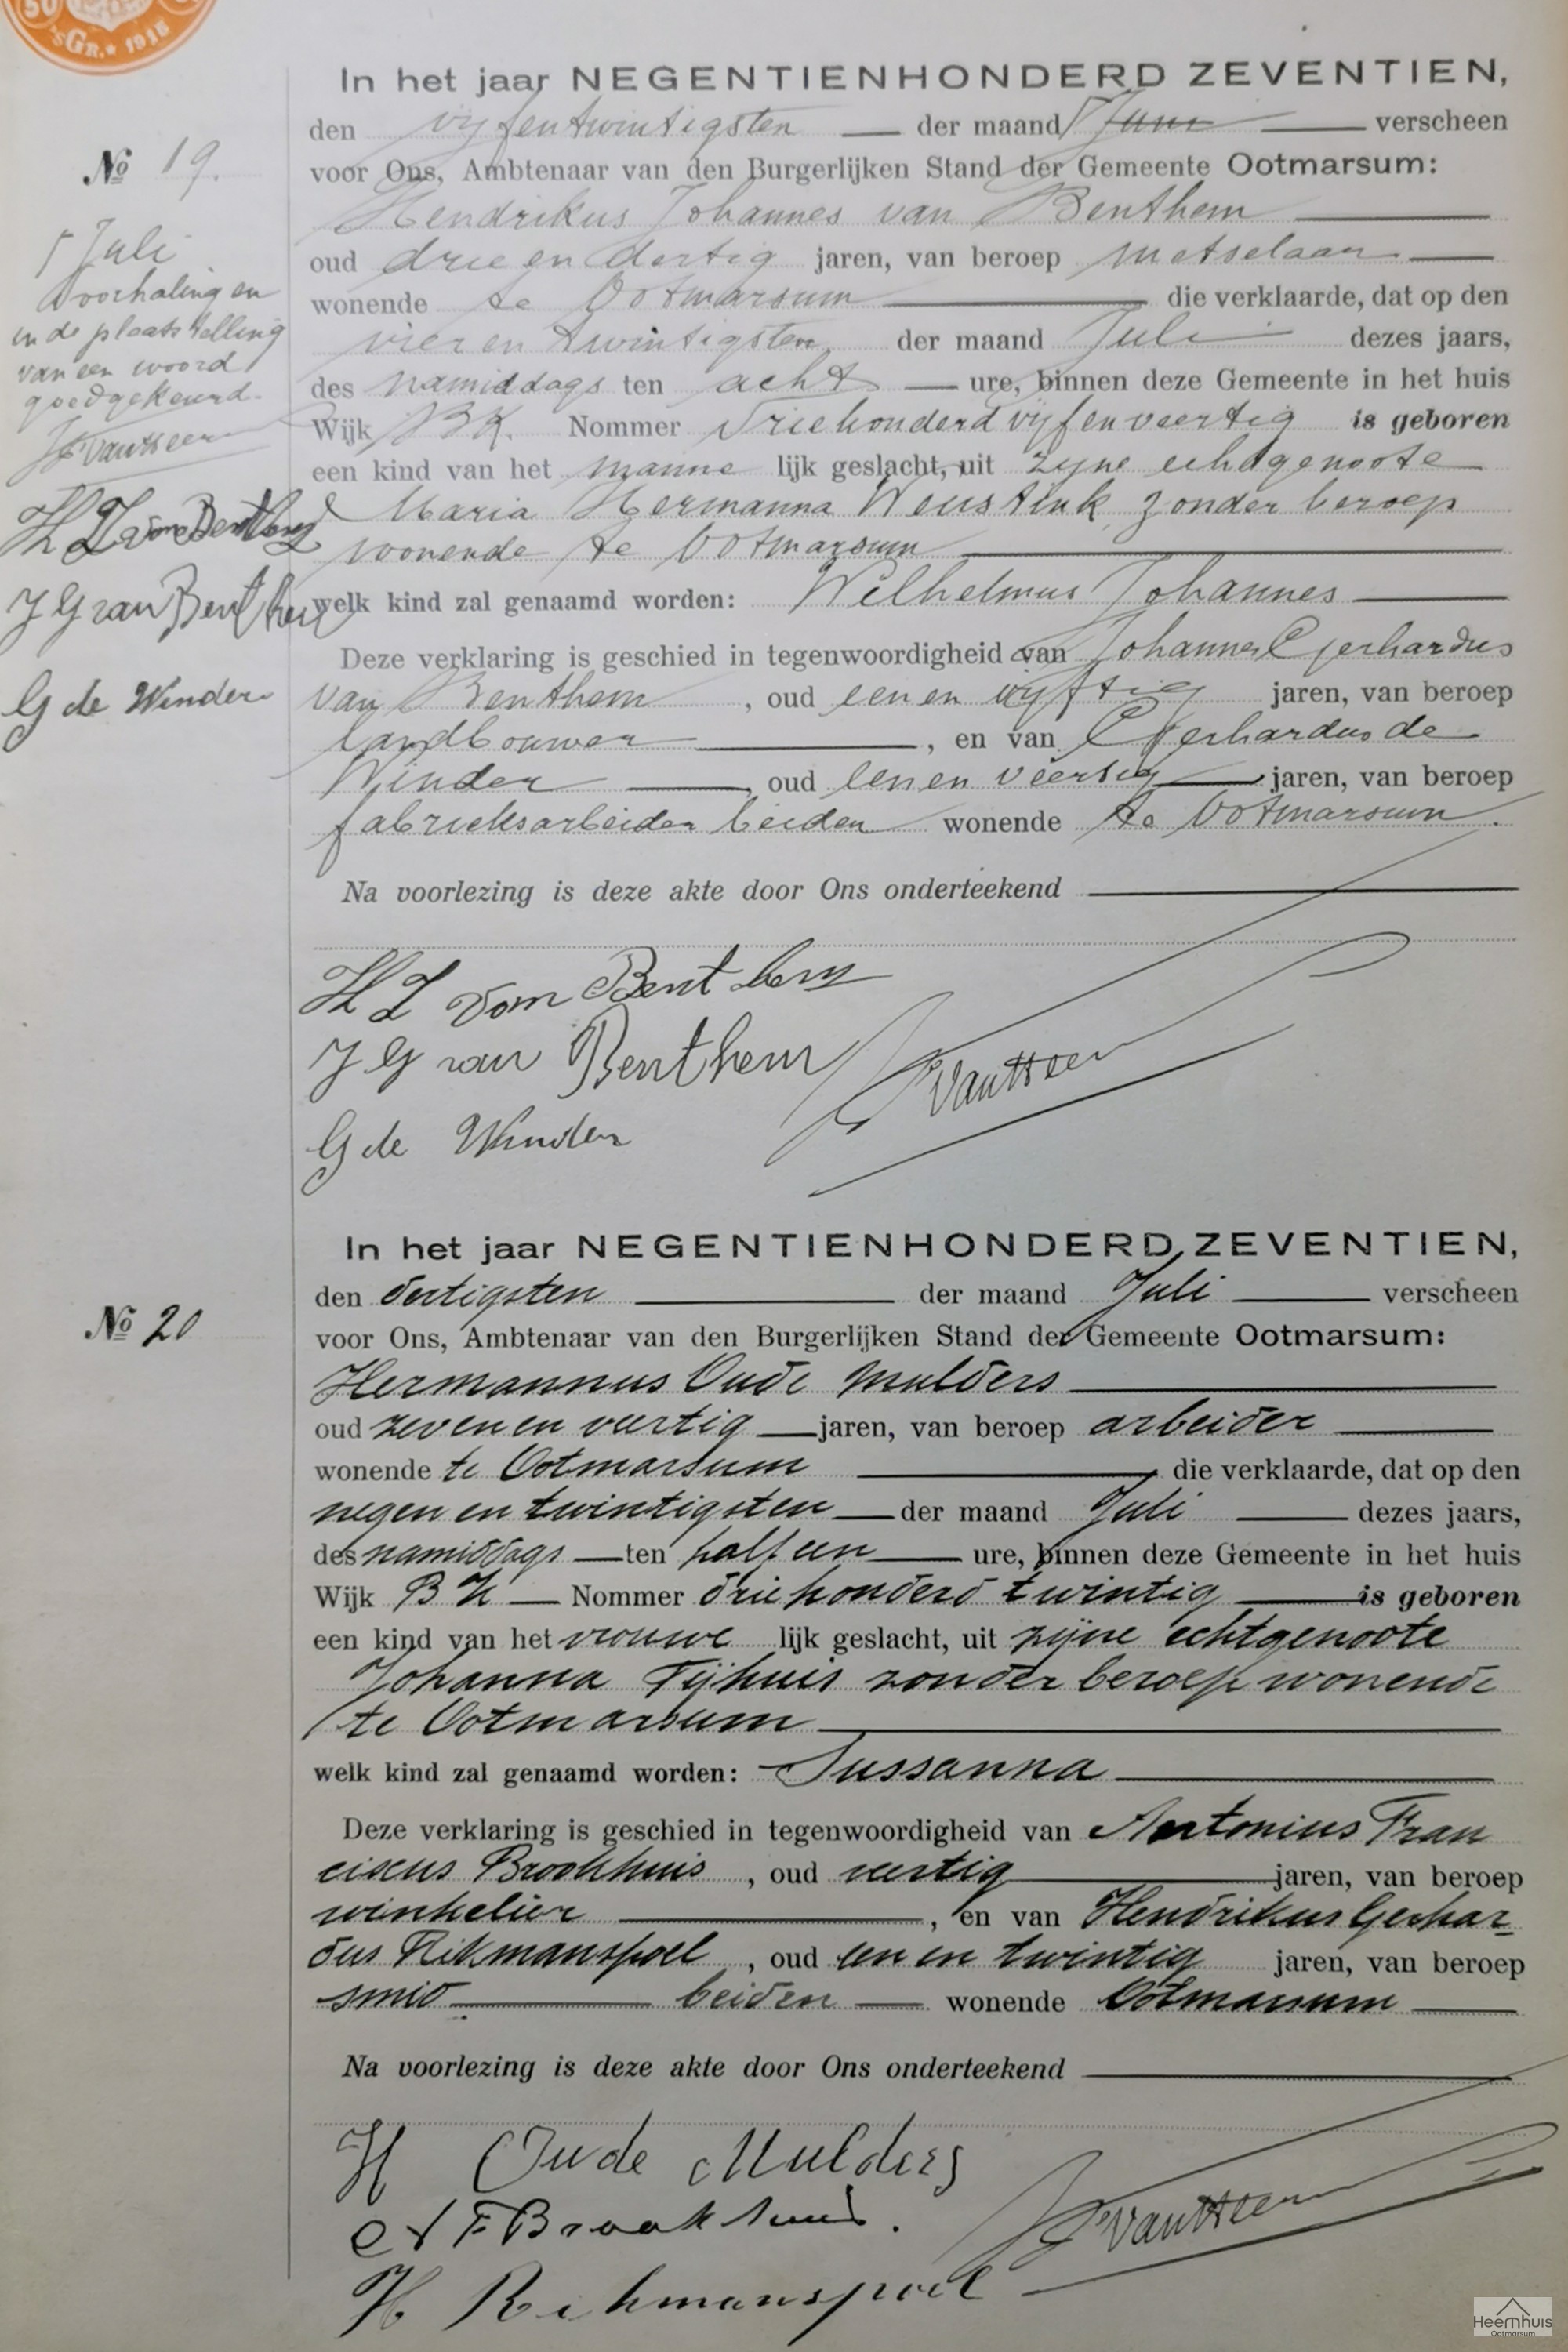 50
'sGR. * 1915
In het jaar NEGENTIENHONDERD ZEVENTIEN,
den vijfentwintigsten der maand Juni verscheen
No 19.
voor Ons, Ambtenaar van den Burgerlijken Stand der Gemeente Ootmarsum:
Hendrikus Johannes van Benthem
oud drie en dertig jaren, van beroep metselaar
wonende te Ootmarsum die verklaarde, dat op den
vier en twintigsten der maand Juli dezes jaars,
des namiddags ten acht ure, binnen deze Gemeente in het huis
Wijk BK. Nommer driehonderd vijfenveertig is geboren
een kind van het manne lijk geslacht, uit zijne echtgenoote
Maria Hermanna Weustink, zonder beroep
wonende te Ootmarsum
welk kind zal genaamd worden: Wilhelmus Johannes
Deze verklaring is geschied in tegenwoordigheid van Johannes Gerhardus
van Benthem, oud een en vijftig jaren, van beroep
landbouwer, en van Gerhardus de
Winder, oud een en veertig jaren, van beroep
fabrieksarbeider beiden wonende te Ootmarsum.
Na voorlezing is deze akte door Ons onderteekend
Juli
Doorhaling en
in de plaatsstelling
van een woord
goedgekeurd.
H J van Benthem
J G van Benthem
G de Winder
H J van Benthem
J G van Benthem
G de Winder
In het jaar NEGENTIENHONDERD ZEVENTIEN,
den dertigsten der maand Juli verscheen
No 20
voor Ons, Ambtenaar van den Burgerlijken Stand der Gemeente Ootmarsum:
Hermannus Oude Mulders
oud zeven en veertig jaren, van beroep arbeider
wonende te Ootmarsum die verklaarde, dat op den
negen en twintigsten der maand Juli dezes jaars,
des namiddags ten half een ure, binnen deze Gemeente in het huis
Wijk B K Nommer driehonderd twintig is geboren
een kind van het vrouwe lijk geslacht, uit zijne echtgenoote
Johanna Tijhuis zonder beroep wonende
te Ootmarsum
welk kind zal genaamd worden: Sussanna
Deze verklaring is geschied in tegenwoordigheid van Antonius Fran
ciscus Brookhuis, oud veertig jaren, van beroep
winkelier, en van Hendrikus Gerhar-
dus Rikmanspoel, oud een en twintig jaren, van beroep
smid beiden wonende Ootmarsum
Na voorlezing is deze akte door Ons onderteekend
H Oude Mulders
A F Brookhuis.
H Rikmanspoel
Heemhuis
Ootmarsum